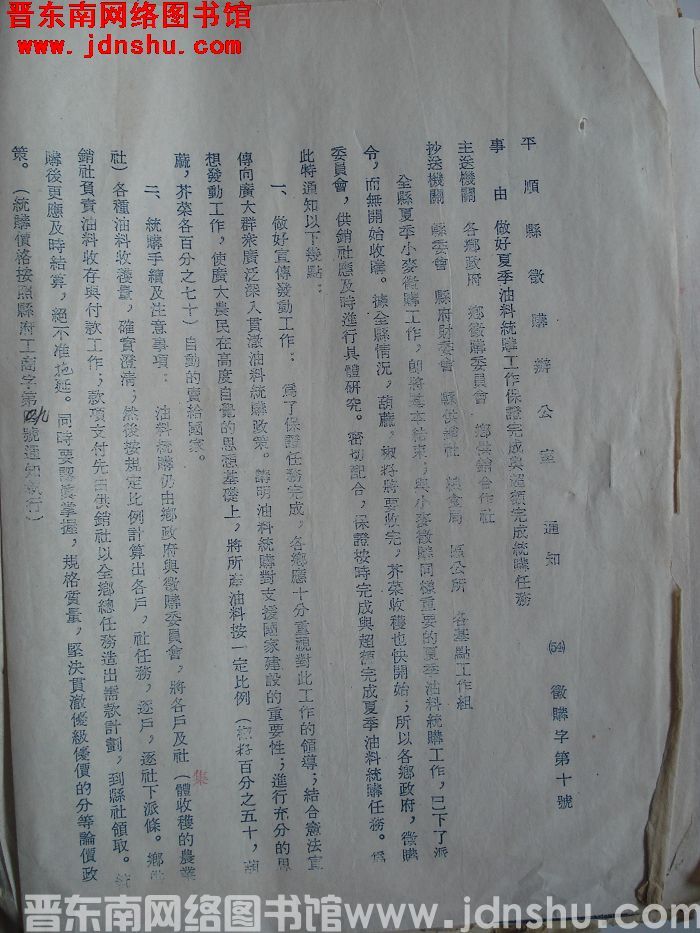 晋东南网络图书馆
www.jdnshu.com
平順縣徵購辦公室 通知 (54)徵購字第十號
事由 做好夏季油料統購工作保證完成與超額完成統購任務
主送機關 各鄉政府 鄉徵購委員會 鄉供銷合作社
抄送機關 縣委會 縣府財委會 縣供銷社 糧食局 區公所 各基點工作組
全縣夏季小麥徵購工作,即將基本結束;與小麥徵購同樣重要的夏季油料統購工作,已下了派
令,而無開始收購。據全縣情況,葫蔴、椒籽將要收完,芥菜收穫也快開始;所以各鄉政府,徵購
委員會,供銷社應及時進行具體研究。密切配合,保證按時完成與超額完成夏季油料統購任務。爲
此特通知以下幾點:
一、做好宣傳發動工作: 爲了保證任務完成,各鄉應十分重視對此工作的領導;結合憲法宣
傳向廣大群衆廣泛深入貫澈油料統購政策。講明油料統購對支援國家建設的重要性;進行充分的思
想發動工作,使廣大農民在高度自覺的思想基礎上,將所產油料按一定比例(椒籽百分之五十,葫
蔴,芥菜各百分之七十)自動的賣給國家。
二、統購手續及注意事項: 油料統購仍由鄉政府與徵購委員會,將各戶及社(集體收穫的農業
社)各種油料收穫量,確實澄清;然後按規定比例計算出各戶,社任務,逐戶,逐社下派條。鄉供
銷社負責油料收存與付款工作;款項支付先由供銷社以全鄉總任務造出需款計劃,到縣社領取。統
購後更應及時結算,絕不准拖延。同時要認真掌握,規格質量,堅決貫澈優級優價的分等論價政
策。(統購價格按照縣府工商字第 號通知執行)
晋东南网络图书馆 www.jdnshu.com